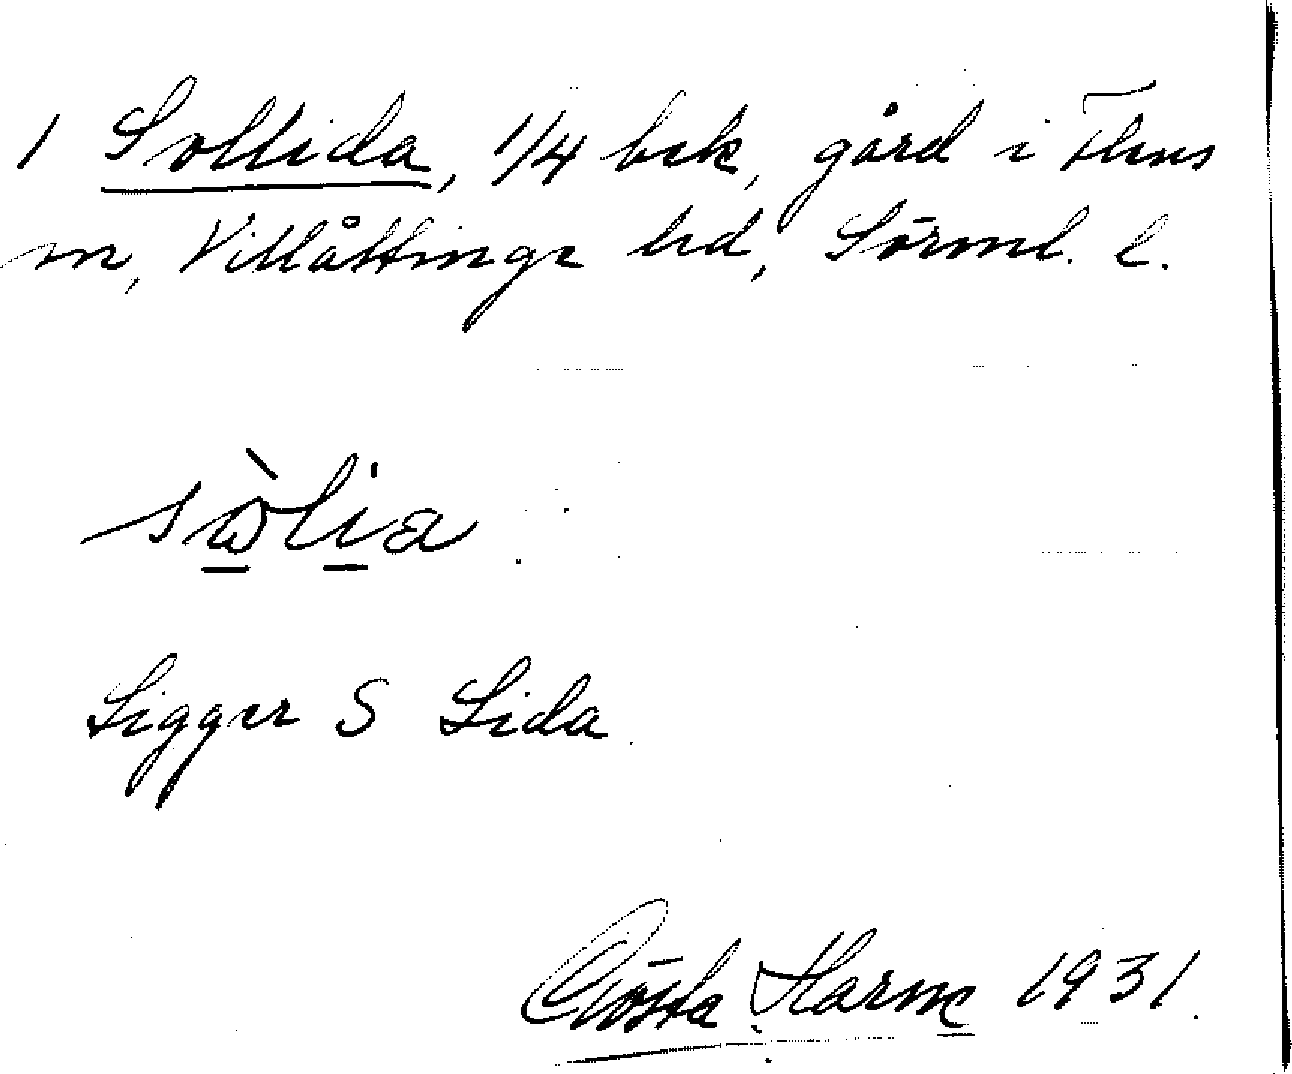 1 Sollida, 1/4 bsk, gård i Flens
sn, Villåttinge hd, Sörml. l.
sὼlia
Ligger S Lida.
Gösta Harm 1931.